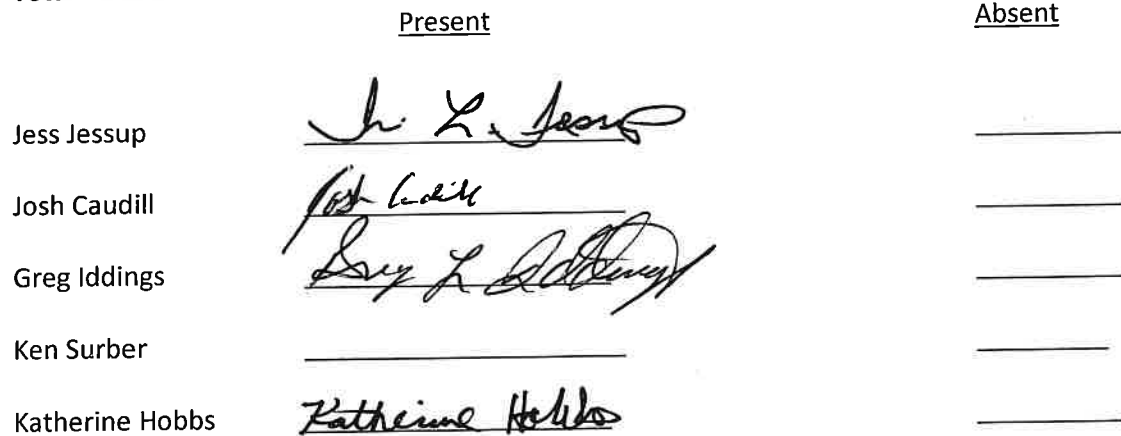 Present Absent
Jess Jessup L. Jessup
Josh Caudill Josh Caudill
Greg Iddings Greg L Iddings
Ken Surber
Katherine Hobbs Katherine Hobbs